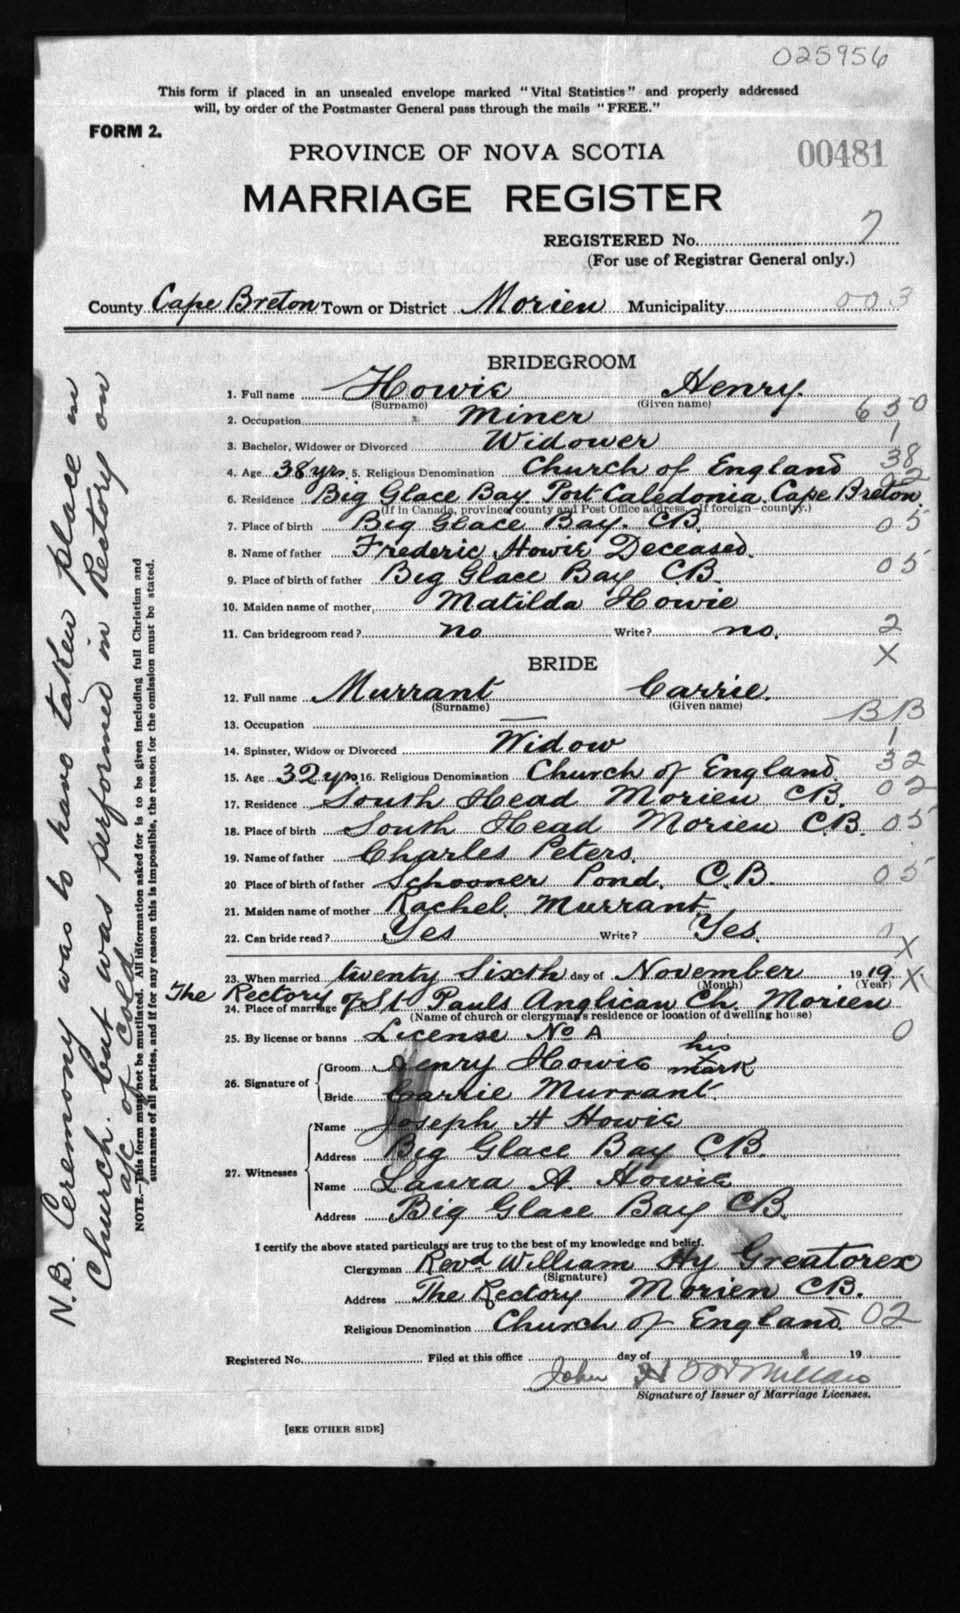 025956
This form if placed in an unsealed envelope marked "Vital Statistics" and properly addressed
will, by order of the Postmaster General pass through the mails "FREE."
FORM 2.
PROVINCE OF NOVA SCOTIA
00481
MARRIAGE REGISTER
REGISTERED No. 7
(For use of Registrar General only.)
County Cape Breton Town or District Morien Municipality 003
BRIDEGROOM
1. Full name Howie Henry.
(Surname) (Given name)
2. Occupation Miner 630
3. Bachelor, Widower or Divorced Widower 1
4. Age 38 yrs. 5. Religious Denomination Church of England 38
6. Residence Big Glace Bay Port Caledonia. Cape Breton. 02
(If in Canada, province, county and Post Office address. If foreign—country.)
7. Place of birth Big Glace Bay. CB. 05
8. Name of father Frederic Howie Deceased.
9. Place of birth of father Big Glace Bay CB. 05
10. Maiden name of mother, Matilda Howie
11. Can bridegroom read? no Write? no. 2
X
BRIDE
12. Full name Murrant Carrie.
(Surname) (Given name)
13. Occupation — BB
14. Spinster, Widow or Divorced Widow 1
15. Age 32 yrs 16. Religious Denomination Church of England. 32
17. Residence South Head Morien CB. 02
18. Place of birth South Head Morien CB. 05
19. Name of father Charles Peters.
20 Place of birth of father Schooner Pond. C.B. 05
21. Maiden name of mother Rachel. Murrant.
22. Can bride read? Yes Write? Yes. 0
X
23. When married twenty Sixth day of November 1919 X
(Month) (Year)
24. Place of marriage The Rectory of St Pauls Anglican Ch. Morien
(Name of church or clergyman's residence or location of dwelling house)
25. By license or banns License No A 0
26. Signature of Groom Henry Howie his X mark
Bride Carrie Murrant.
27. Witnesses Name Joseph H Howie
Address Big Glace Bay CB.
Name Laura A. Howie
Address Big Glace Bay CB.
I certify the above stated particulars are true to the best of my knowledge and belief.
Clergyman Revd William Hy Greatorex
(Signature)
Address The Rectory Morien CB.
Religious Denomination Church of England. 02
Registered No. Filed at this office day of 19
John
Signature of Issuer of Marriage Licenses.
[SEE OTHER SIDE]
N.B. Ceremony was to have taken place in
Church. but was performed in Rectory on
a/c of cold
NOTE.—This form must not be mutilated. All information asked for is to be given including full Christian and
surnames of all parties, and if for any reason this is impossible, the reason for the omission must be stated.